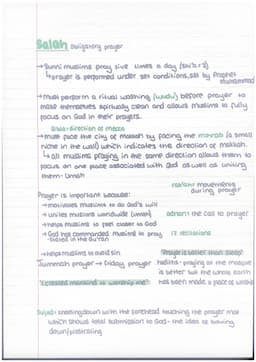 Salah obligatory prayer
→ Sunni muslims pray five times a day
↳ prayer is performed under set conditions, set by Prophet Muhammad
→ must perform a ritual washing (wudu) before prayer to
make themselves spiritually clean and allows muslims to fully
focus on God in their prayers.
direction of mecca
→ must face the city of makkah by facing the mihrab (a small
niche in the wall) which indicates the direction of makkah.
↳ all muslims praying in the same direction allows them to
focus on one place associated with God as well as uniting
them - Ummah
rakah movements
during prayer
Prayer is important because:
→ motivates muslims to do God's will
→ unites muslims worldwide (umah)
adhan the call to prayer
→ helps muslims to feel closer to God
→ God has commanded muslims to pray
17 recitations
stated in the Qu'ran
→ helps muslims to avoid sin
"Prayer is better than sleep"
Jummah prayer → Friday prayer
hadiths - praying at the mosque
is better but the whole earth
"I created mankind to worship me"
has been made a place of worship
Sujud: kneeling down with the forehead touching the prayer mat
which should total submission to God - the idea of bowing
down/prostrating